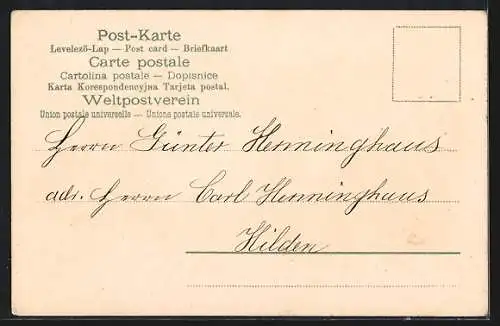 Post-Karte
Levelező-Lap — Post card — Briefkaart
Carte postale
Cartolina postale — Dopisnice
Karta Korespondencyjna Tarjeta postal.
Weltpostverein
Union postale universelle — Unione postale universale.
Herrn Günter Herminghaus
adr. Herrn Carl Herminghaus
Hilden